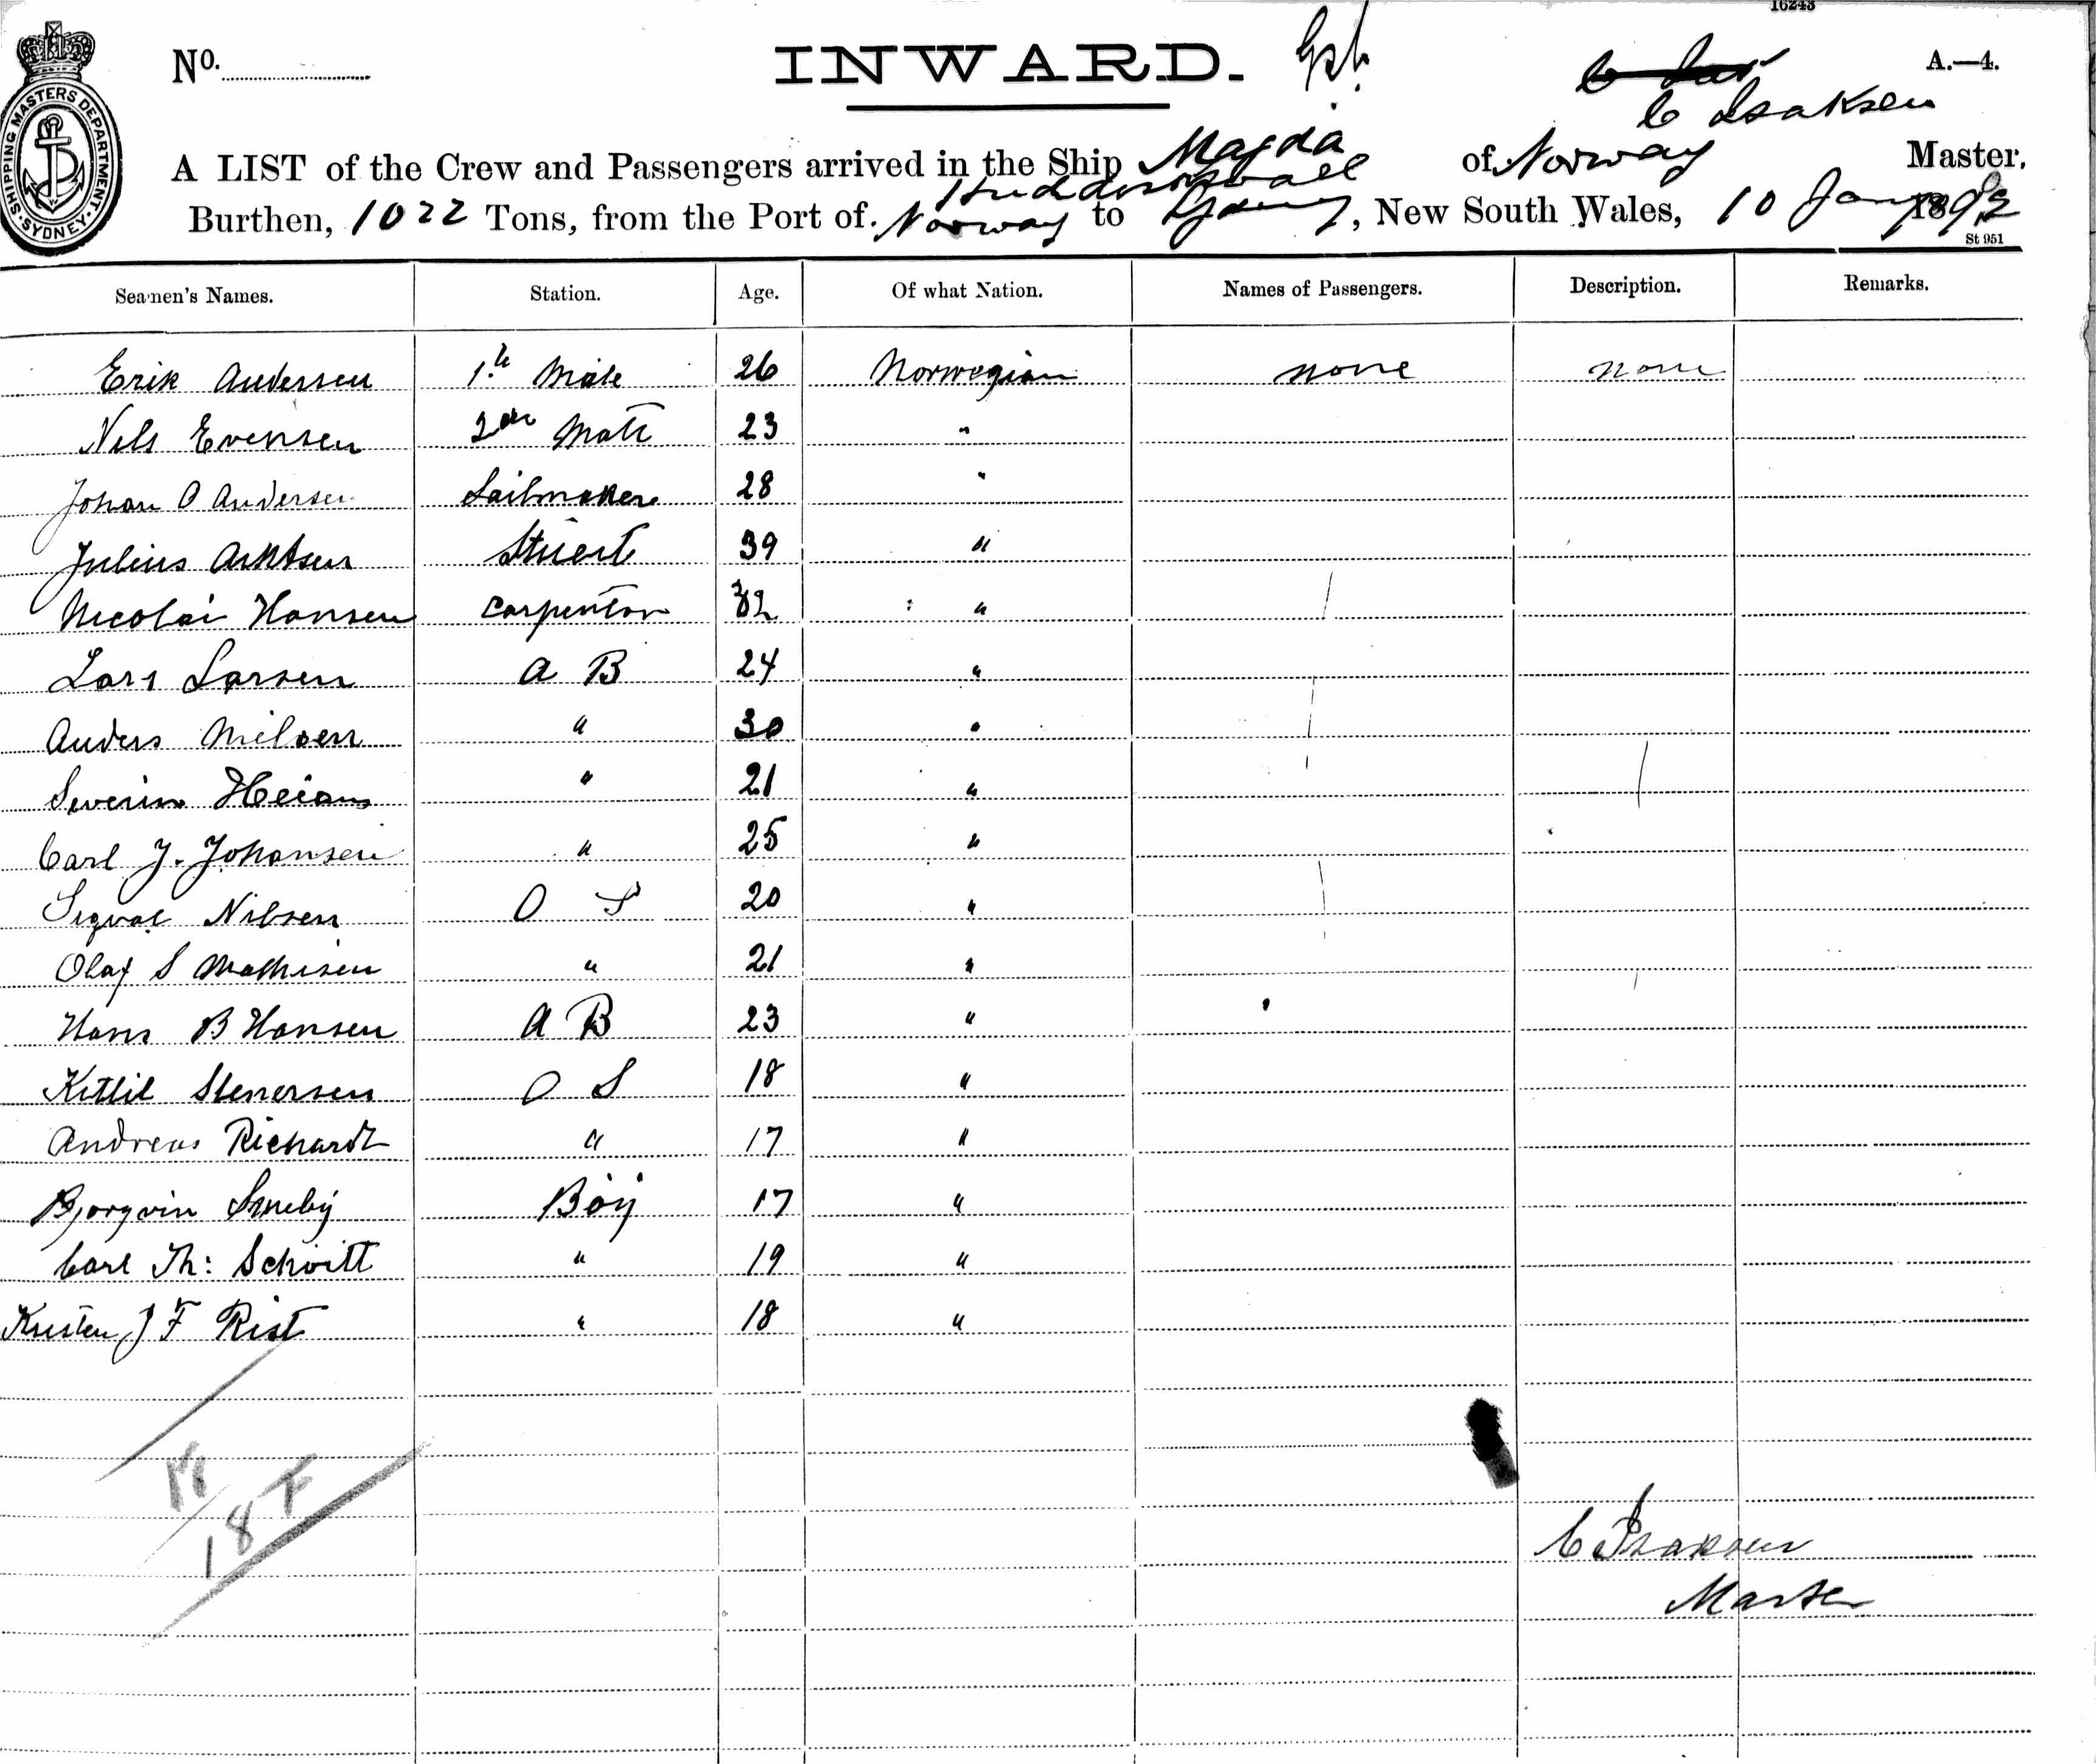 16243
SHIPPING MASTERS DEPARTMENT. SYDNEY.
No.
INWARD.
A.—4.
C Isaksen
A LIST of the Crew and Passengers arrived in the Ship Magda of Norway Master,
Hudderswall
Burthen, 1022 Tons, from the Port of Norway to Sydney, New South Wales, 10 Jany 1892
St 951
Seamen's Names. Station. Age. Of what Nation. Names of Passengers. Description. Remarks.
Erik Andersen 1st Mate 26 Norwegian none none
Nils Evensen 2nd Mate 23 "
Johan O Andersen Sailmaker 28 "
Julius Stuert 39 "
Nicolai Hansen Carpenter 32 "
Lars Larsen A B 24 "
Anders Nielsen " 30 "
Severin " 21 "
Carl J. Johansen " 25 "
Sigval Nilsen O S 20 "
Olaf S Mathisen " 21 "
Hans B Hansen A B 23 "
Kittil Stenersen O S 18 "
Andreas Richardt " 17 "
Bjorgvin Smeby Boy 17 "
Carl Th: Schvitt " 19 "
Kristen J F Rist " 18 "
18 F
C Isaksen
Master